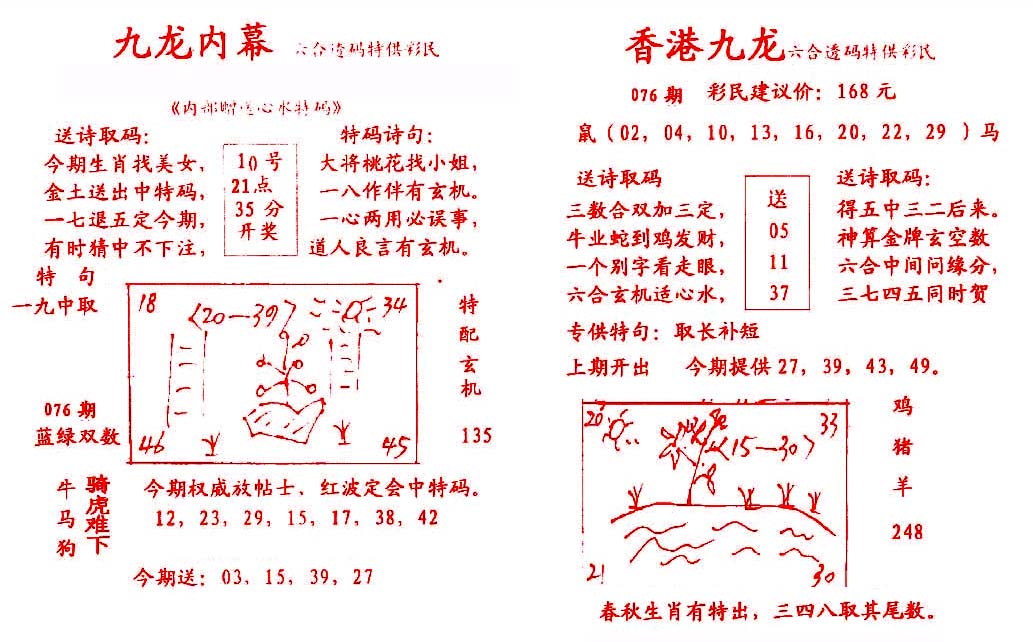 九龙内幕 六合透码特供彩民
《内部赠送心水特码》
送诗取码:
今期生肖找美女,
金土送出中特码,
一七退五定今期,
有时猜中不下注,
10号
21点
35分
开奖
特码诗句:
大将桃花找小姐,
一八作伴有玄机。
一心两用必误事,
道人良言有玄机。
特 句
一九中取
076期
蓝绿双数
18
<20—39>
34
46
45
特配玄机
135
牛马狗
骑虎难下
今期权威放帖士、红波定会中特码。
12, 23, 29, 15, 17, 38, 42
今期送: 03, 15, 39, 27
香港九龙 六合透码特供彩民
076期 彩民建议价: 168元
鼠(02, 04, 10, 13, 16, 20, 22, 29 )马
送诗取码
三数合双加三定,
牛业蛇到鸡发财,
一个别字看走眼,
六合玄机适心水,
送
05
11
37
送诗取码:
得五中三二后来。
神算金牌玄空数
六合中间问缘分,
三七四五同时贺
专供特句: 取长补短
上期开出 今期提供27, 39, 43, 49。
20
33
<15—30>
21
30
鸡
猪
羊
248
春秋生肖有特出, 三四八取其尾数。